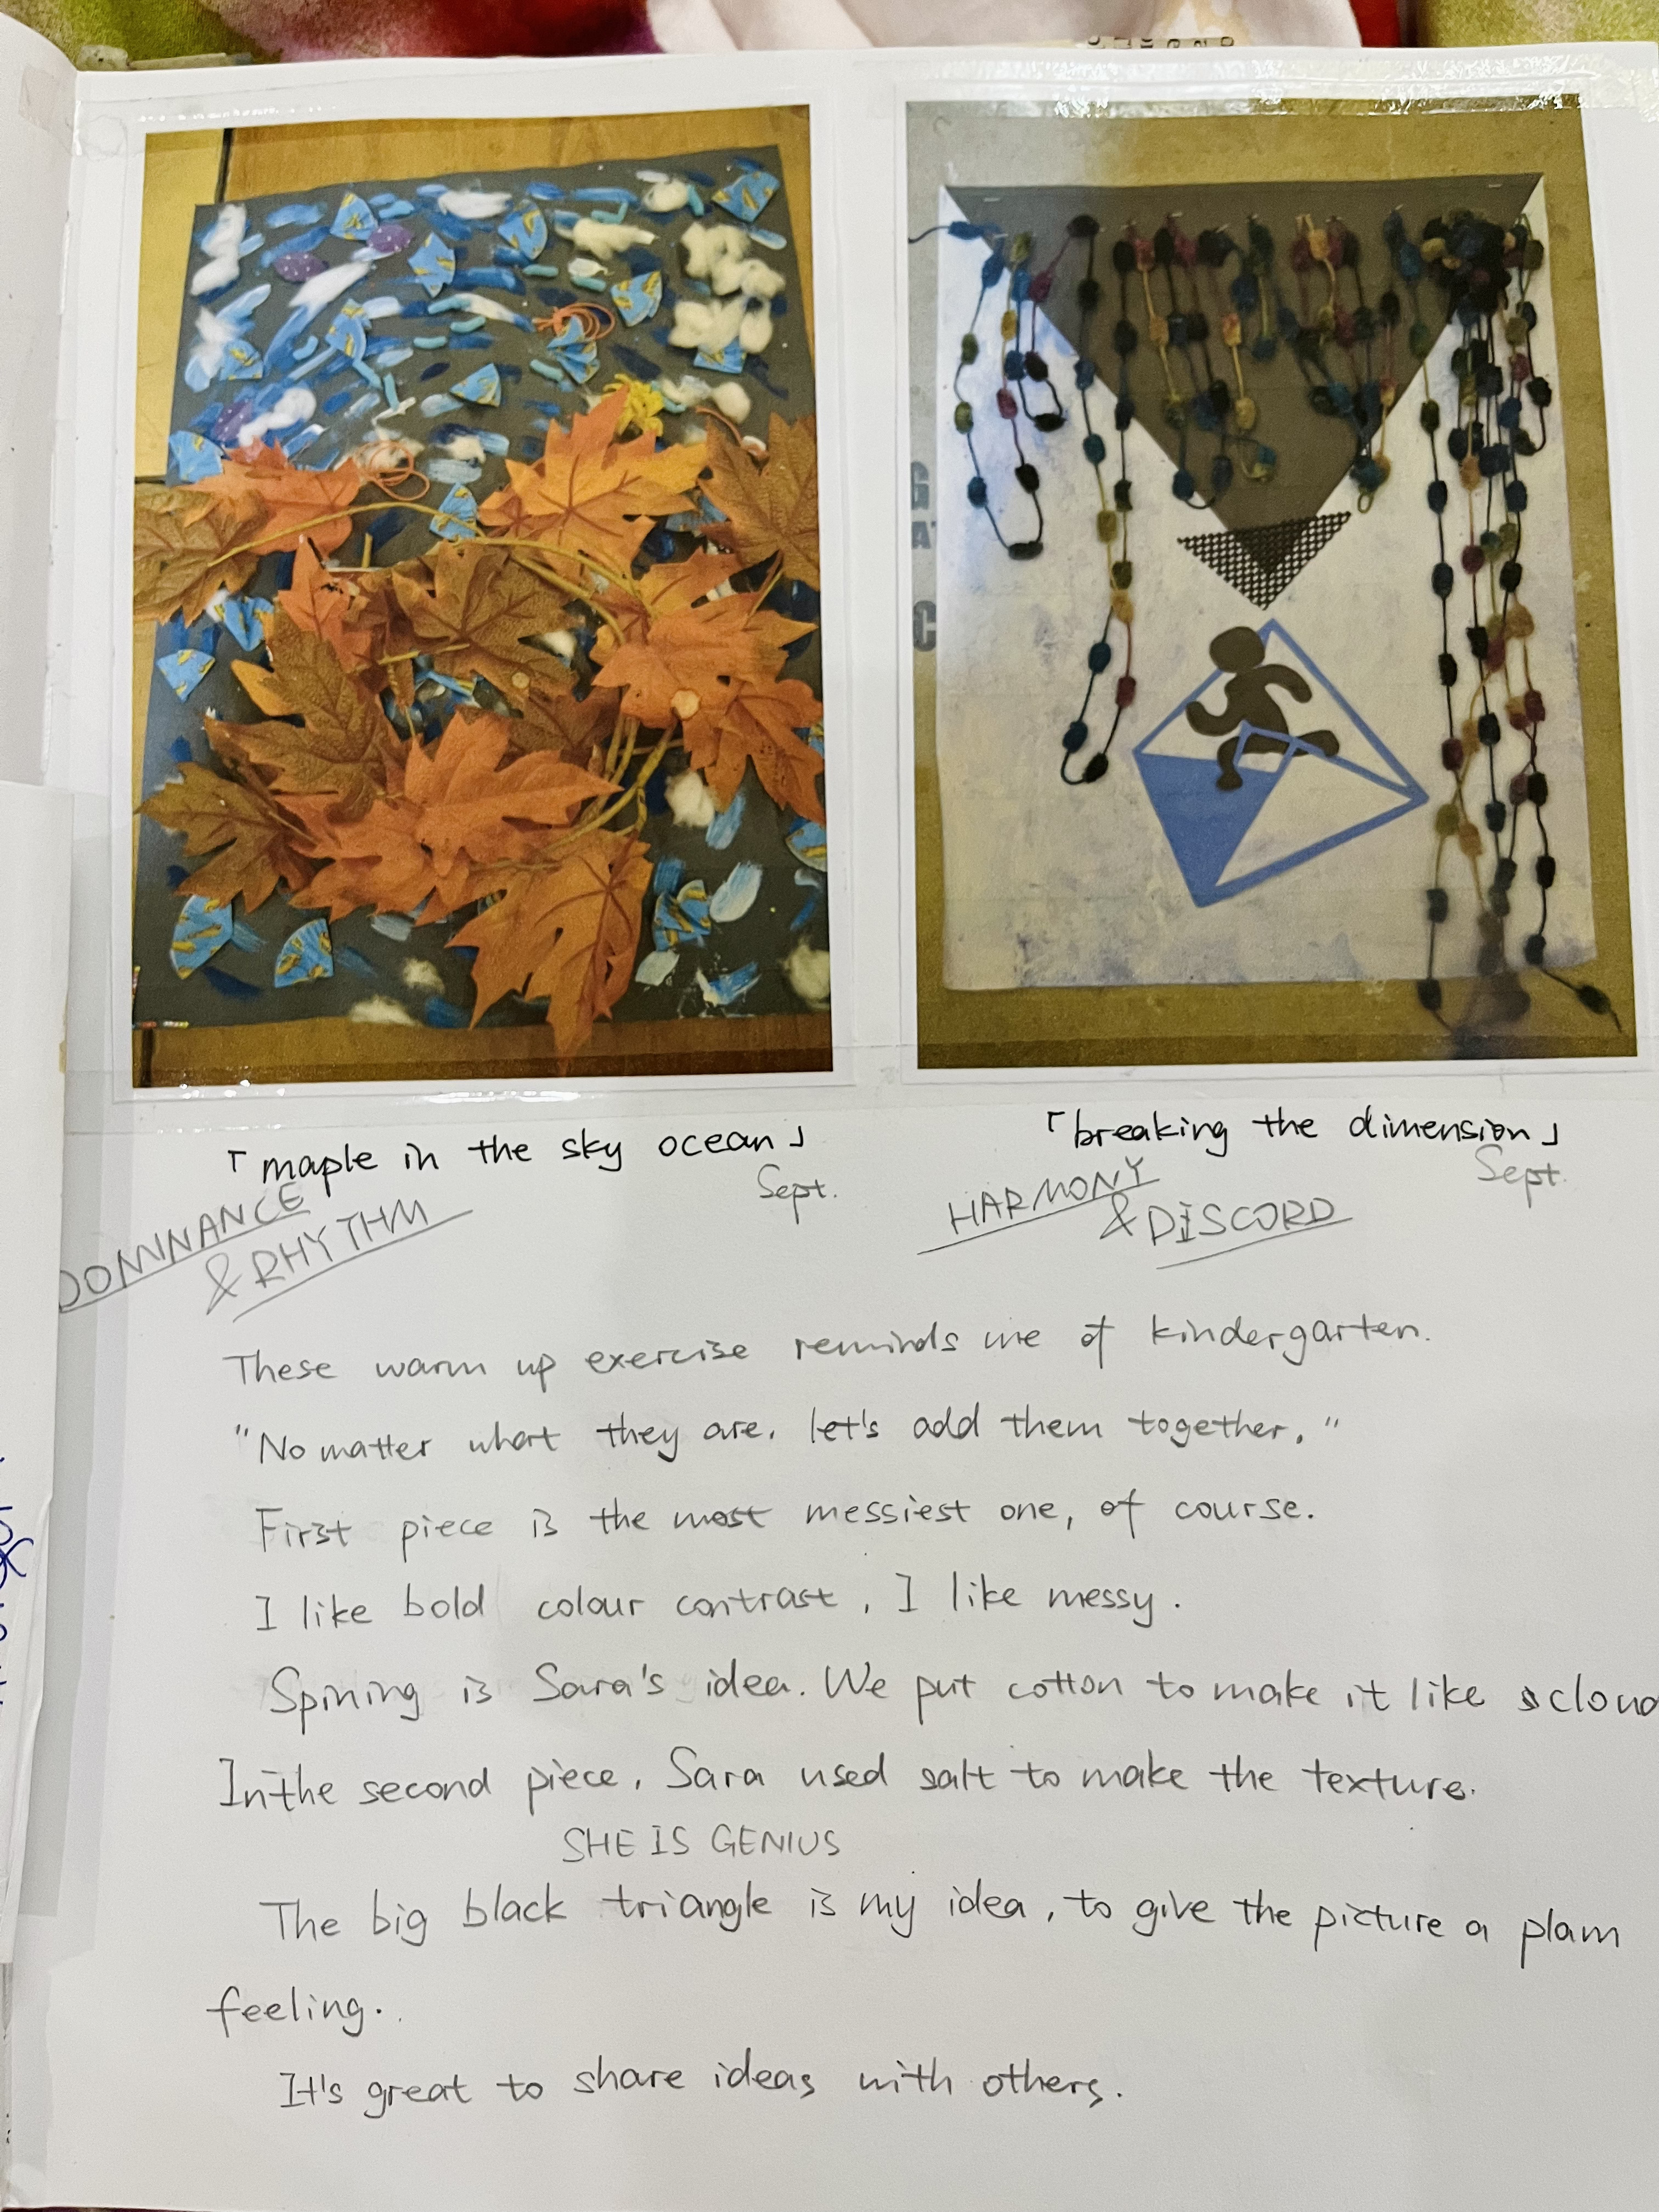 「maple in the sky ocean」
Sept.
DOMINANCE
& RHYTHM
「breaking the dimension」
Sept.
HARMONY
& DISCORD
These warm up exercise reminds me of kindergarten.
"No matter what they are. let's add them together."
First piece is the most messiest one, of course.
I like bold colour contrast, I like messy.
Spining is Sara's idea. We put cotton to make it like cloud
In the second piece, Sara used salt to make the texture.
SHE IS GENIUS
The big black triangle is my idea, to give the picture a plam
feeling.
It's great to share ideas with others.